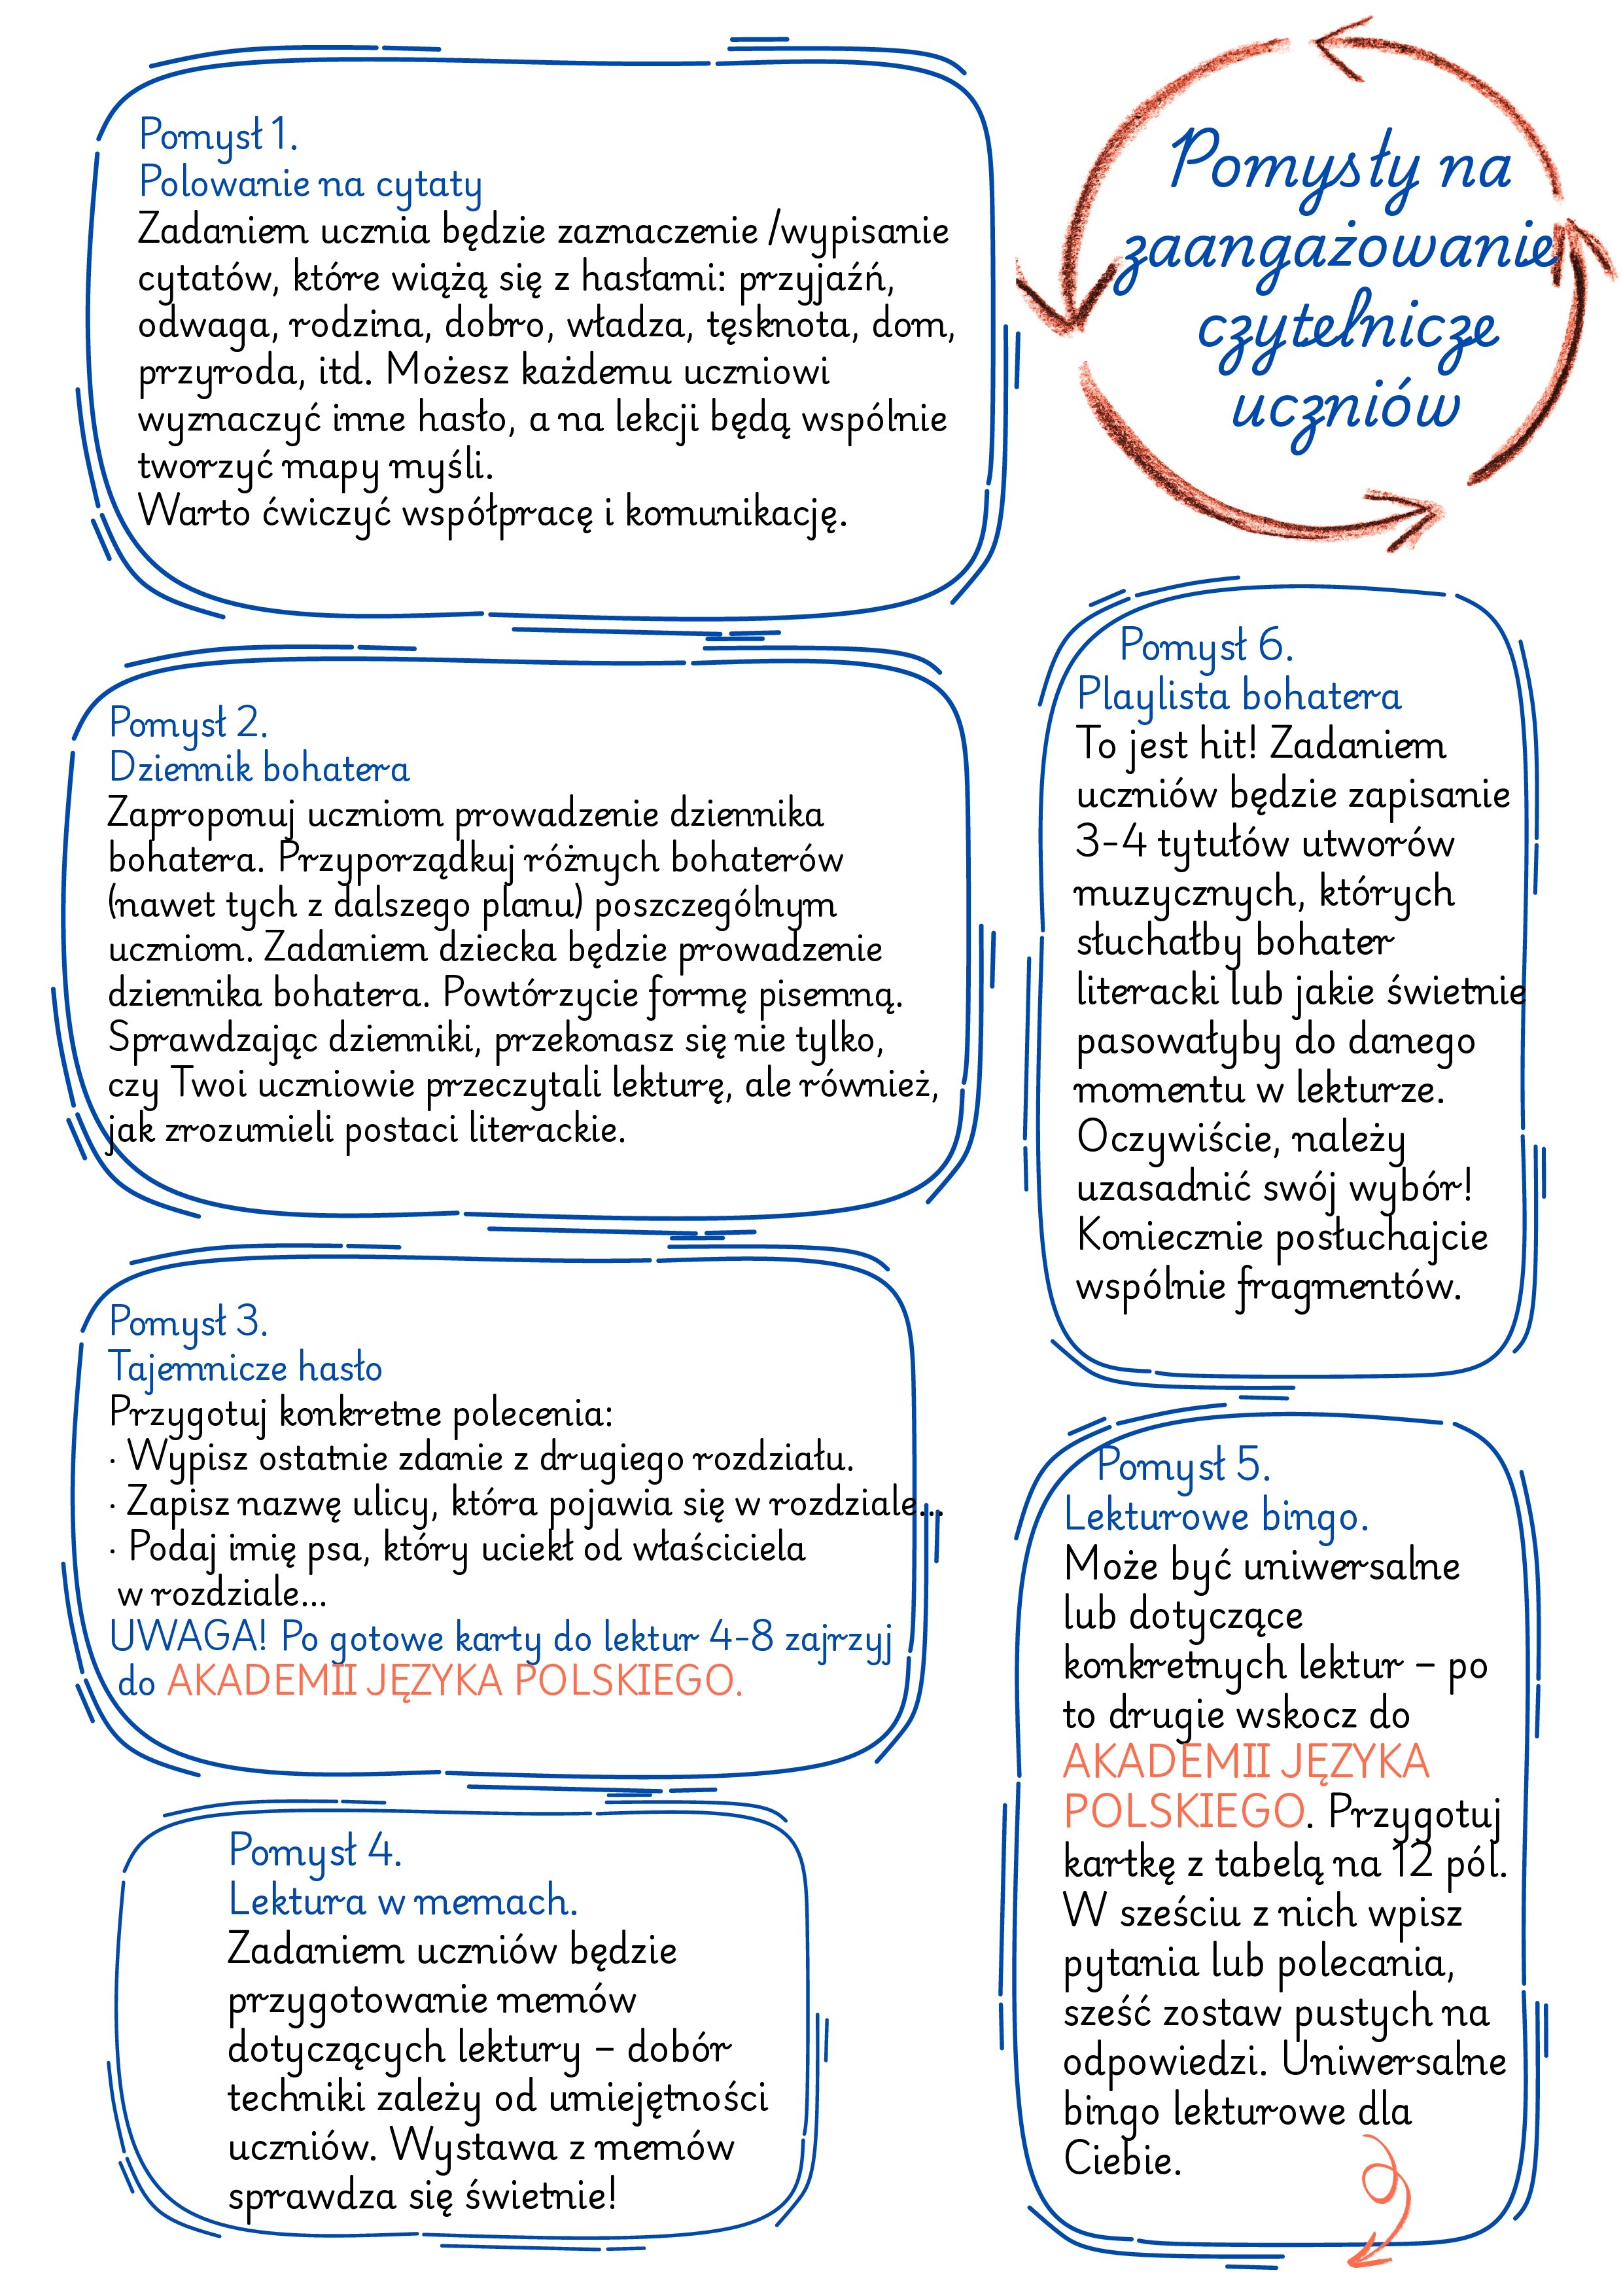 Pomysły na
zaangażowanie
czytelnicze
uczniów
Pomysł 1.
Polowanie na cytaty
Zadaniem ucznia będzie zaznaczenie /wypisanie
cytatów, które wiążą się z hasłami: przyjaźń,
odwaga, rodzina, dobro, władza, tęsknota, dom,
przyroda, itd. Możesz każdemu uczniowi
wyznaczyć inne hasło, a na lekcji będą wspólnie
tworzyć mapy myśli.
Warto ćwiczyć współpracę i komunikację.
Pomysł 2.
Dziennik bohatera
Zaproponuj uczniom prowadzenie dziennika
bohatera. Przyporządkuj różnych bohaterów
(nawet tych z dalszego planu) poszczególnym
uczniom. Zadaniem dziecka będzie prowadzenie
dziennika bohatera. Powtórzycie formę pisemną.
Sprawdzając dzienniki, przekonasz się nie tylko,
czy Twoi uczniowie przeczytali lekturę, ale również,
jak zrozumieli postaci literackie.
Pomysł 3.
Tajemnicze hasło
Przygotuj konkretne polecenia:
· Wypisz ostatnie zdanie z drugiego rozdziału.
· Zapisz nazwę ulicy, która pojawia się w rozdziale...
· Podaj imię psa, który uciekł od właściciela
w rozdziale...
UWAGA! Po gotowe karty do lektur 4-8 zajrzyj
do AKADEMII JĘZYKA POLSKIEGO.
Pomysł 4.
Lektura w memach.
Zadaniem uczniów będzie
przygotowanie memów
dotyczących lektury – dobór
techniki zależy od umiejętności
uczniów. Wystawa z memów
sprawdza się świetnie!
Pomysł 6.
Playlista bohatera
To jest hit! Zadaniem
uczniów będzie zapisanie
3-4 tytułów utworów
muzycznych, których
słuchałby bohater
literacki lub jakie świetnie
pasowałyby do danego
momentu w lekturze.
Oczywiście, należy
uzasadnić swój wybór!
Koniecznie posłuchajcie
wspólnie fragmentów.
Pomysł 5.
Lekturowe bingo.
Może być uniwersalne
lub dotyczące
konkretnych lektur – po
to drugie wskocz do
AKADEMII JĘZYKA
POLSKIEGO. Przygotuj
kartkę z tabelą na 12 pól.
W sześciu z nich wpisz
pytania lub polecania,
sześć zostaw pustych na
odpowiedzi. Uniwersalne
bingo lekturowe dla
Ciebie.